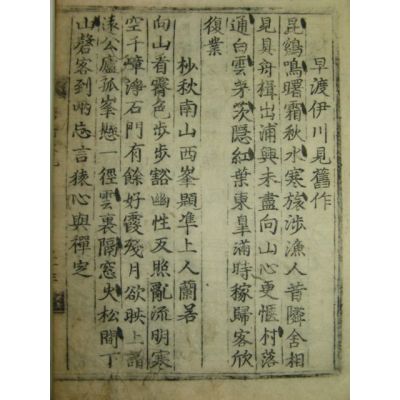 早渡伊川見舊作
昆鷄鳴曙霜秋水寒旅涉漁人昔隣舍相
見具舟楫出浦興未盡向山心更愜村落
通白雲茅茨隱紅葉東皐滿時稼歸客欣
復業
杪秋南山西峯題準上人蘭若
向山看霽色步步豁幽性反照亂流明寒
空千嶂淨石門有餘好霞殘月欲映上詣
遠公廬孤峯懸一徑雲裏隔窓火松間下
山磬客到兩忘言猿心與禪定